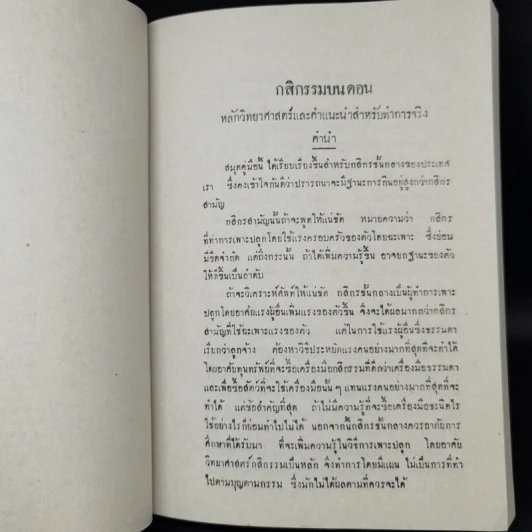 กสิกรรมบนดอน
หลักวิทยาศาสตร์และคำแนะนำสำหรับทำการจริง
คำนำ
สมุดคู่มือนี้ ได้เรียบเรียงขึ้นสำหรับกสิกรชั้นกลางของประเทศ
เรา ซึ่งคงเข้าใจกันดีว่าปรารถนาจะมีฐานะการกินอยู่สูงกว่ากสิกร
สามัญ
กสิกรสามัญนั้นถ้าจะพูดให้แน่ชัด หมายความว่า กสิกร
ที่ทำการเพาะปลูกโดยใช้แรงครอบครัวของตัวโดยฉะเพาะ ซึ่งย่อม
มีขีดจำกัด แต่ถึงกระนั้น ถ้าได้เพิ่มความรู้ขึ้น อาจยกฐานะของตัว
ให้ดีขึ้นเป็นลำดับ
ถ้าจะวิเคราะห์ศัพท์ให้แน่ชัด กสิกรชั้นกลางเป็นผู้ทำการเพาะ
ปลูกโดยอาศัยแรงผู้อื่นเพิ่มแรงของตัวขึ้น จึงจะได้ผลมากกว่ากสิกร
สามัญที่ใช้ฉะเพาะแรงของตัว แต่ในการใช้แรงผู้อื่นซึ่งธรรมดา
เรียกว่าลูกจ้าง ต้องหาวิธีประหยัดแรงคนอย่างมากที่สุดที่จะทำได้
โดยอาศัยทุนทรัพย์ที่จะซื้อเครื่องมือกสิกรรมที่ดีกว่าเครื่องมือธรรมดา
และเพื่อซื้อสัตว์ที่จะใช้เครื่องมือนั้น ๆ แทนแรงคนอย่างมากที่สุดที่จะ
ทำได้ แต่ข้อสำคัญที่สุด ถ้าไม่มีความรู้ที่จะซื้อเครื่องมือชะนิดไร
ใช้อย่างไรก็ย่อมทำไปไม่ได้ นอกจากนี้กสิกรชั้นกลางควรอาศัยการ
ศึกษาที่ได้รับมา ที่จะเพิ่มความรู้ในวิธีการเพาะปลูก โดยอาศัย
วิทยาศาสตร์กสิกรรมเป็นหลัก จึงทำการโดยมีแผน ไม่เป็นการที่ทำ
ไปตามบุญตามกรรม ซึ่งมักไม่ได้ผลตามที่ควรจะได้